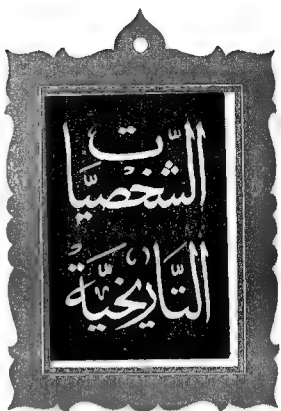 الشّخصيّات
التّاريخيّة